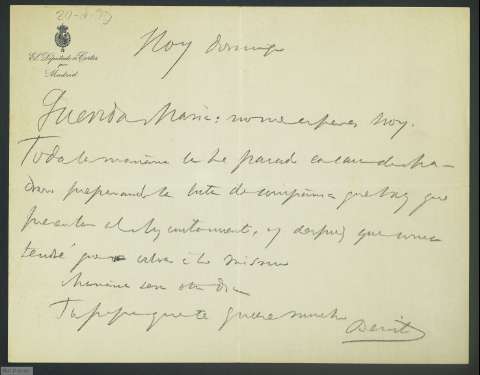 El Diputado a Cortes
por
Madrid
Hoy domingo
Querida María: no me esperes hoy.
Toda la mañana la he pasado en casa de
preparando la lista de compañía que hay que
presentar al Ayuntamiento, y después que coma
tendré que volver a lo mismo
Mañana será otro día
Tu papá que te quiere mucho
Benito